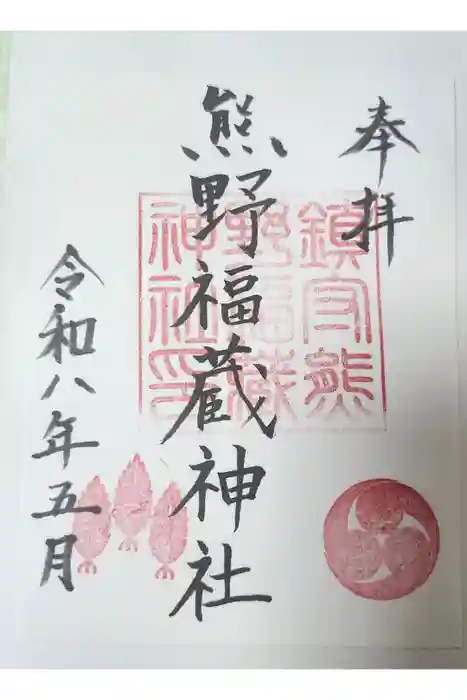 奉拝
熊野福蔵神社
令和八年五月
鎮守熊
野福蔵
神社印